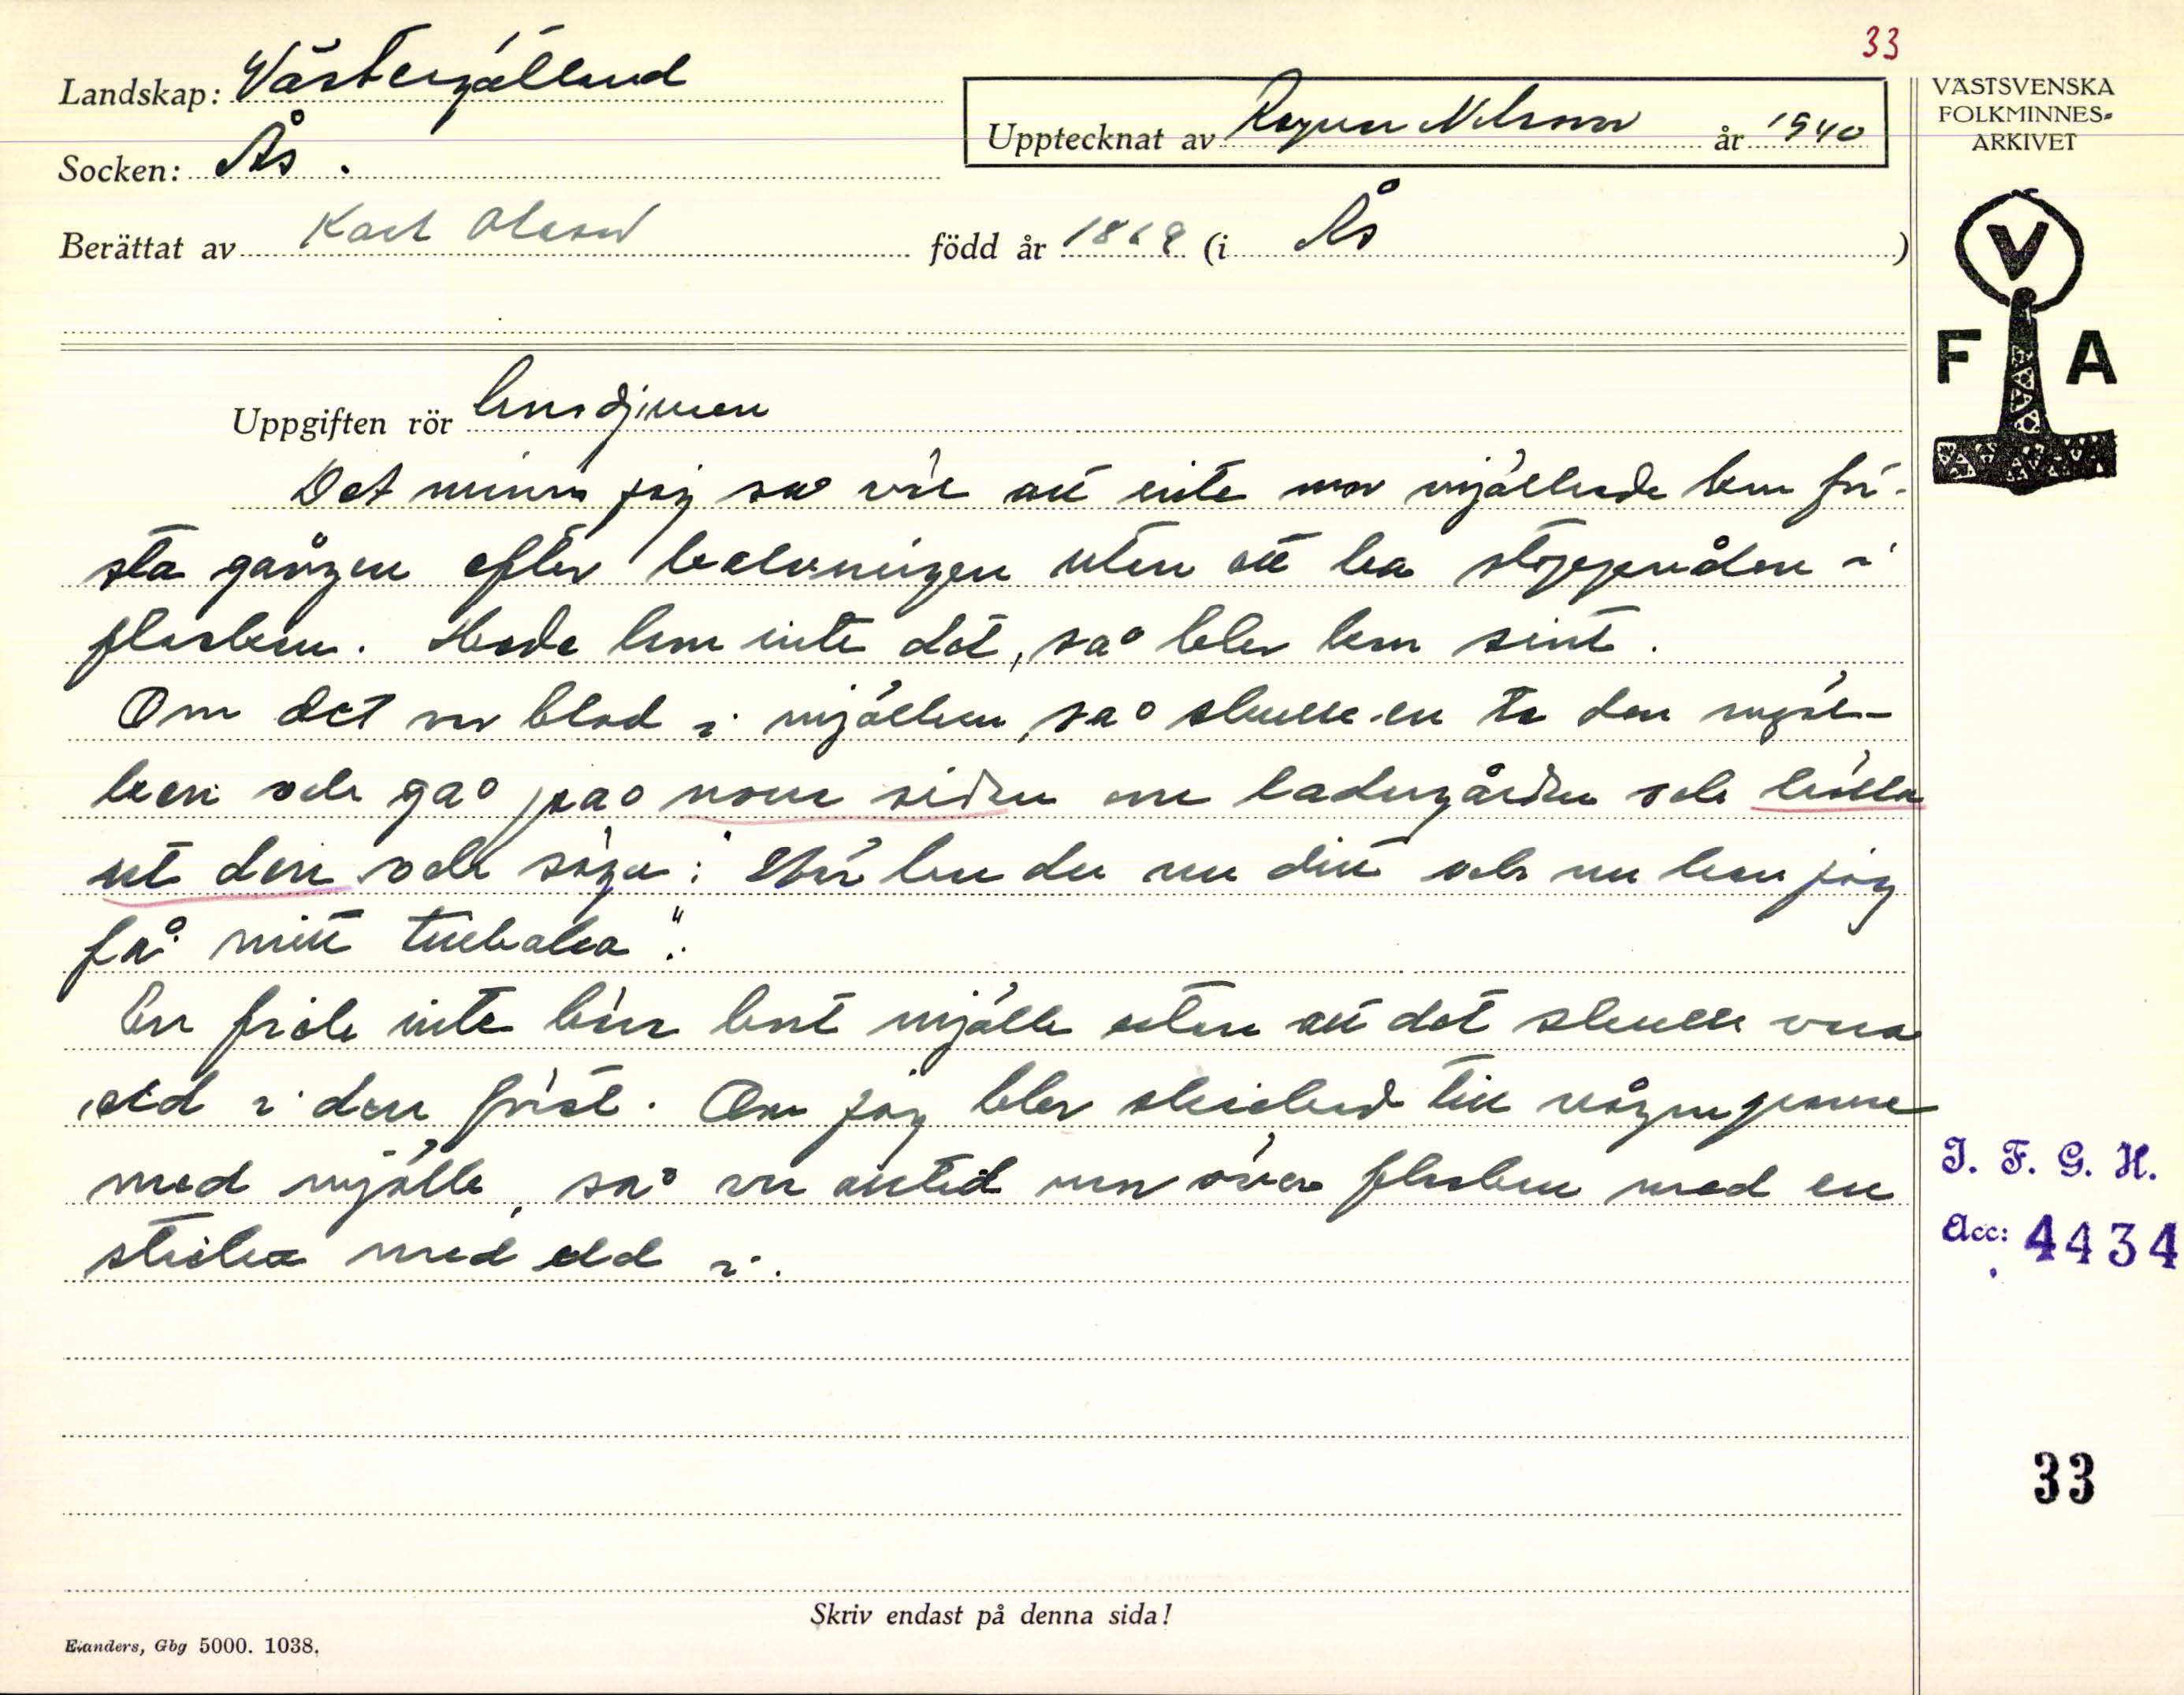 33
Landskap: Västergötland
VÄSTSVENSKA
FOLKMINNES-
ARKIVET
Upptecknat av Ragnar Nilsson år 1940
Socken: Ås.
Berättat av Karl Olsson född år 1868 (i Ås)
V
F A
Uppgiften rör husdjuren
Det minns jag så väl att inte mor mjölkade kon för-
sta gången efter kalvningen utan att ha stoppnålen i
flaskan. Hade hon inte det, så blev kon sint.
Om det var blod i mjölken, så skulle en ta den mjöl-
ken och gå på norr sidan om ladugården och hälla
ut den och säga: "Här har du nu ditt och nu kan jag
få mitt tillbaka".
En fick inte bära bort mjölk utan att det skulle vara
eld i den först. Om jag blev skickad till någon granne
med mjölk, så var alltid mor över flaskan med en
sticka med eld i.
I. F. G. H.
Acc: 4434
33
Skriv endast på denna sida!
Evanders, Gbg 5000. 1038.